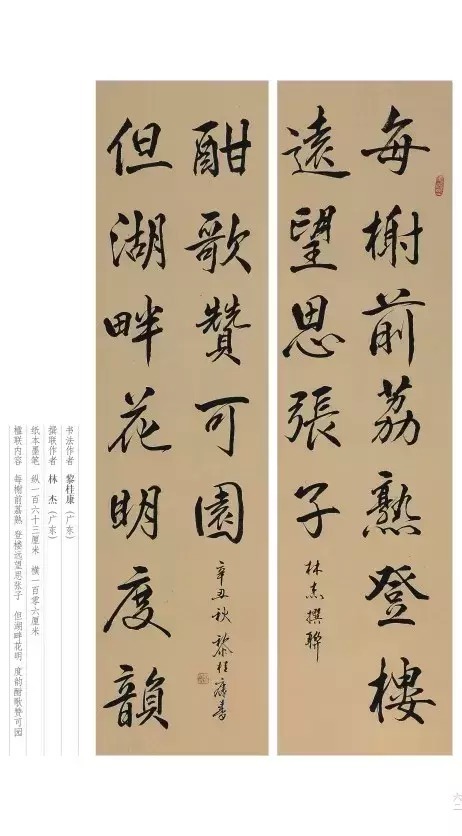 每榭前荔熟登樓
遠望思張子
林杰撰聯
但湖畔花明度韻
酣歌贊可園
辛丑秋 黎桂康書
书法作者 黎桂康（广东）
撰联作者 林 杰（广东）
纸本墨笔 纵一百六十三厘米 横一百零六厘米
楹联内容 每榭前荔熟 登楼远望思张子 但湖畔花明 度韵酣歌赞可园
六二